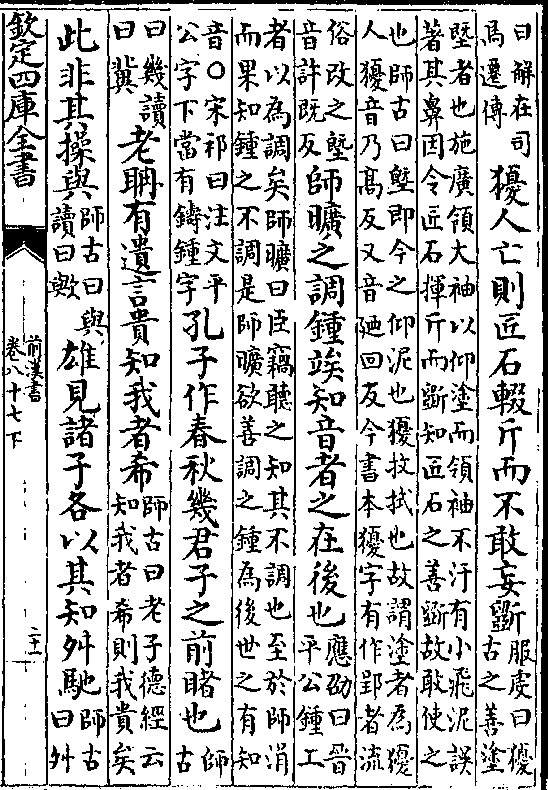 曰解在司
馬遷傳
獿人亡則匠石輟斤而不敢妄斵
服虔曰獿
古之善塗
塈者也施廣領大袖以仰塗而領袖不汙有小飛泥誤
著其鼻因令匠石揮斤而斵知匠石之善斵故敢使之
也師古曰塈即今之仰泥也獿抆拭也故謂塗者為獿
人獿音乃髙反又音陋回反今書本獿字有作郢者流
俗改之塈
音許既反
師曠之調鍾竢知音者之在後也
應劭曰晉
平公鍾工
者以為調矣師曠曰臣竊聽之知其不調也至於師涓
而果知鍾之不調是師曠欲善調之鍾為後世之有知
音○宋祁曰注文平
公字下當有鑄鍾字
孔子作春秋幾君子之前睹也
師
古
曰幾讀
曰冀
老聃有遺言貴知我者希
師古曰老子德經云
知我者希則我貴矣
此非其操與
師古曰與
讀曰歟
雄見諸子各以其知舛馳
師古
曰舛
欽定四庫全書
前漢書
卷八十七下
二十一